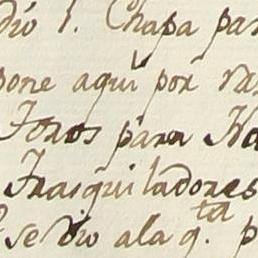 dió 1. Chapa par
pone aqui por raz
Foros para Ha
Frasquiladores
se dio ala q.ta p